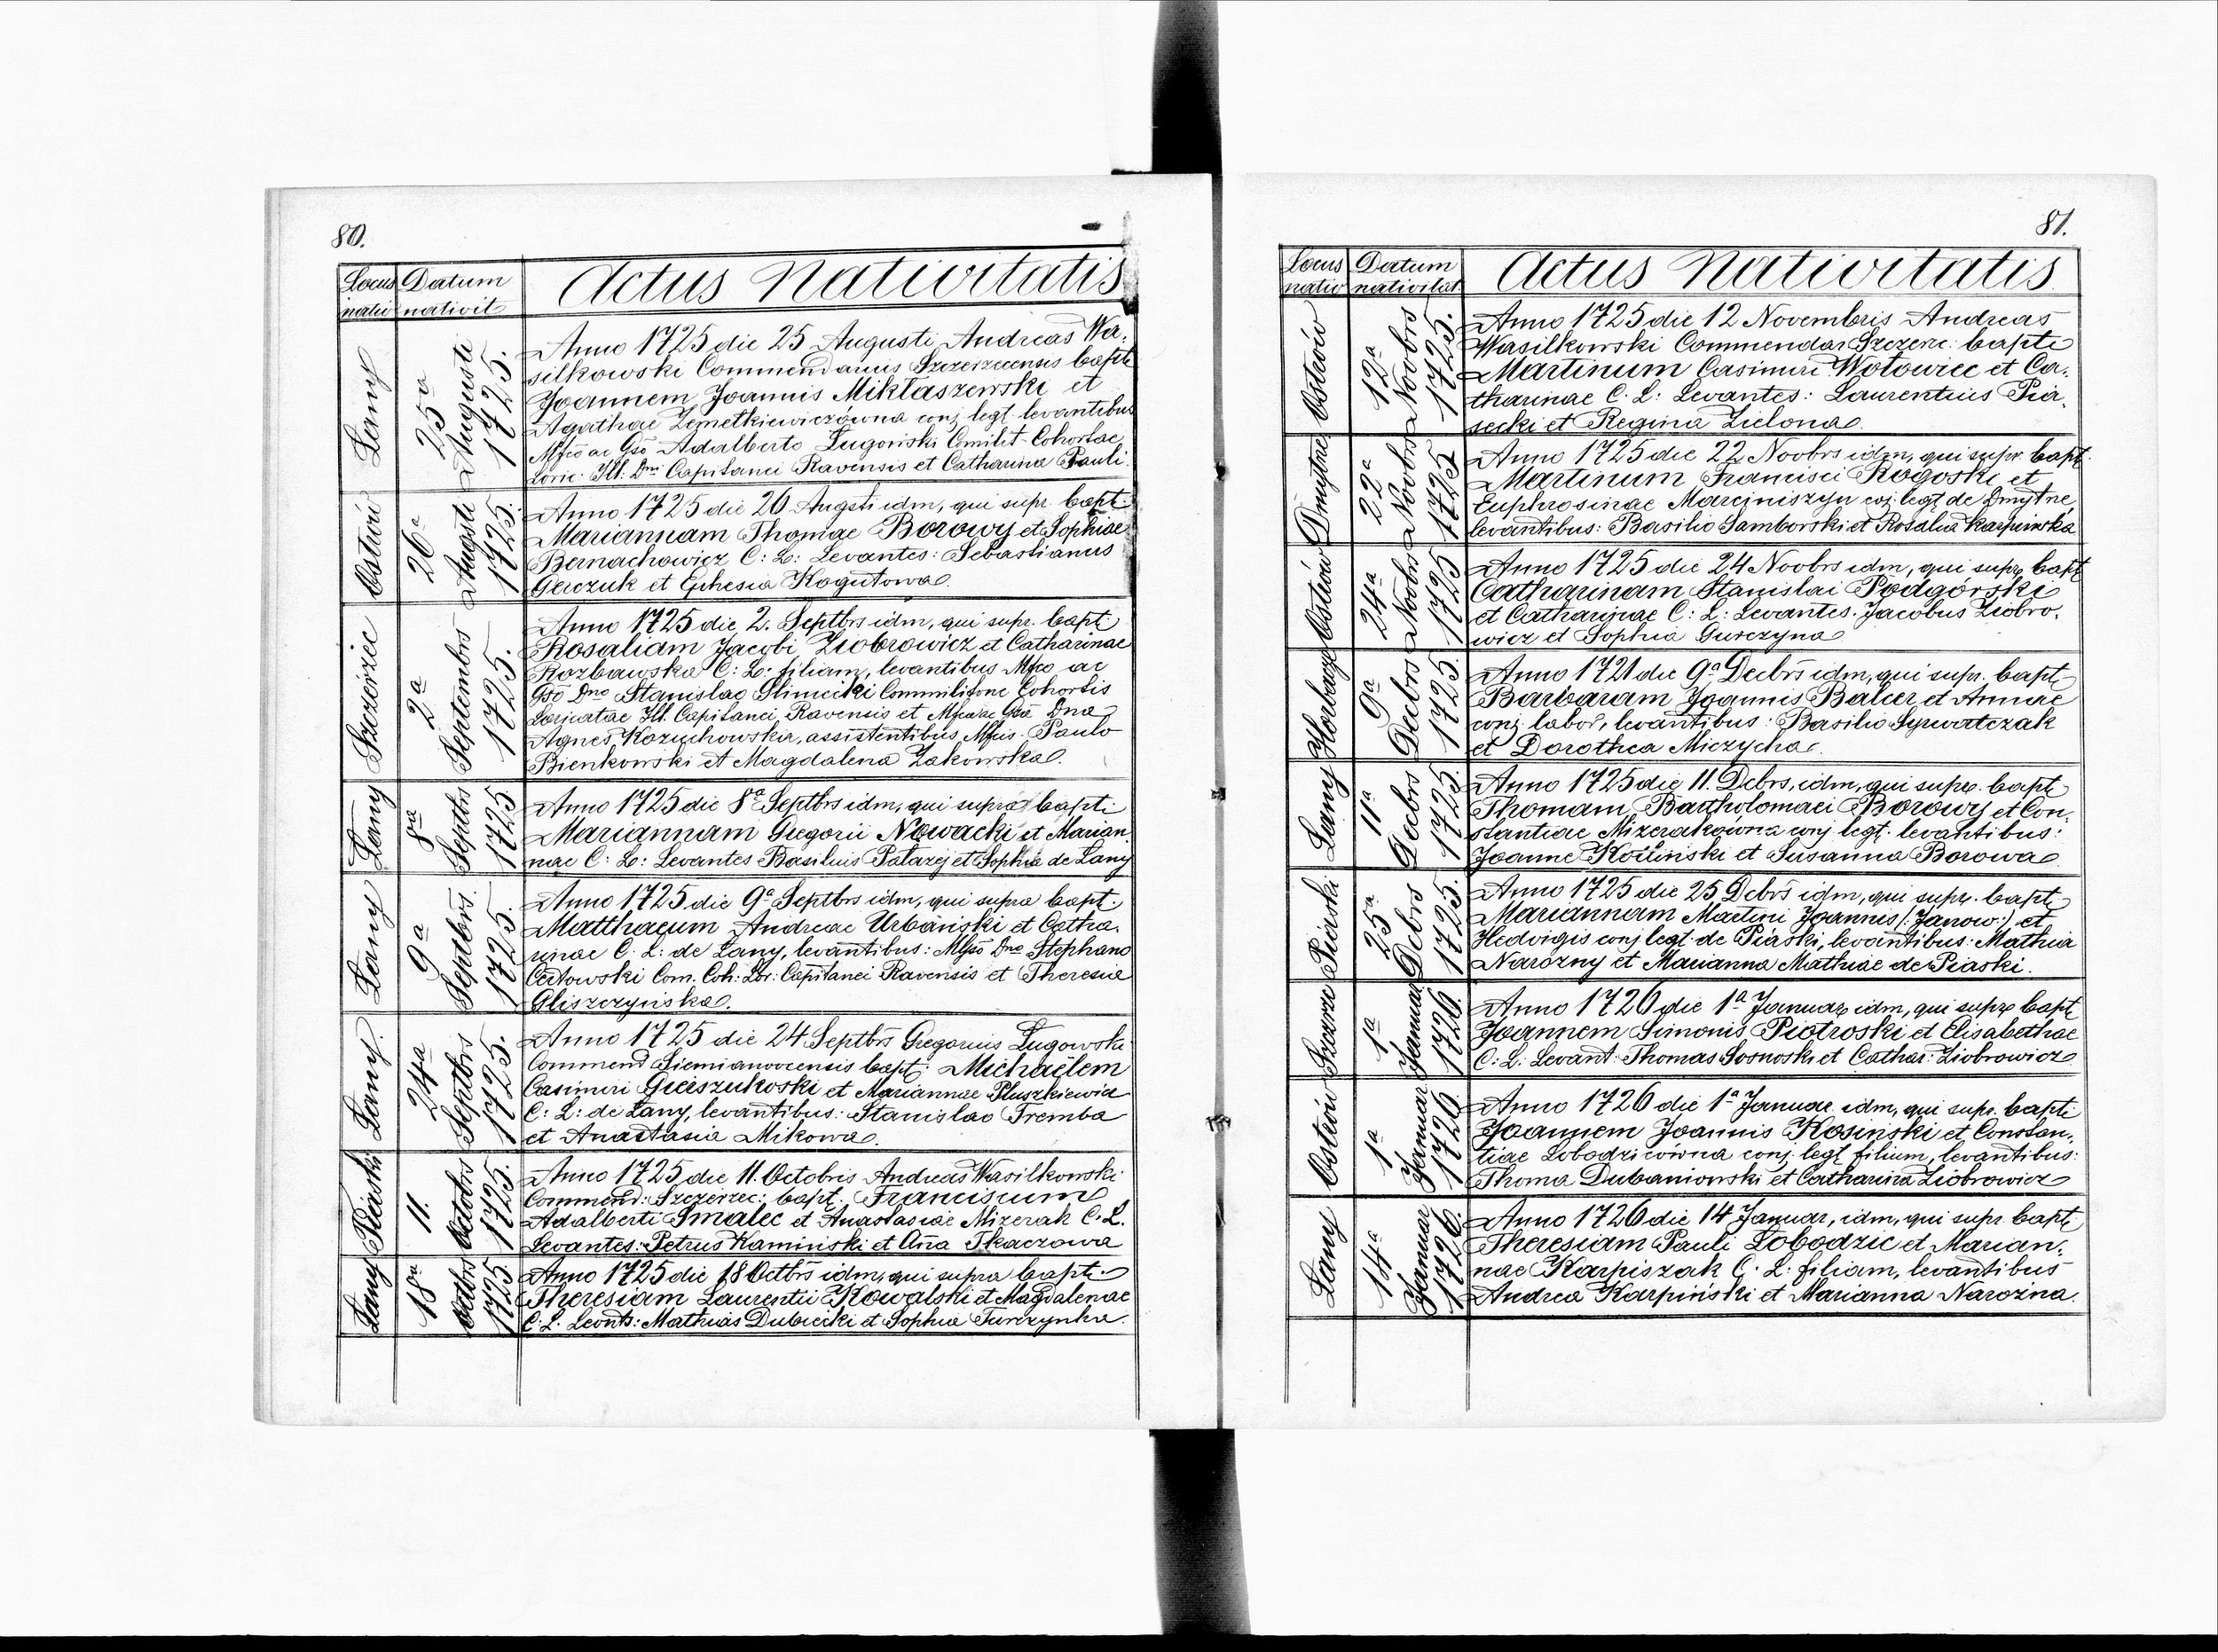 80.
Locus nativ
Datum nativit
Actus Nativitatis
Łany
25a Augusti 1725.
Anno 1725 die 25 Augusti Andreas Wa,
silkowski Commendarius Szczerzecensis bapti
Joannem Joannis Mikłaszewski et
Agathae Zemetkiewiczówna conj. legt. levantibus
Mfco ac Gso Adalberto Ługonski Comilit. Cohortae
Loric. Ill. Dni Capitanei Ravensis et Catharina Pauli.
Ostrów
26a Augsti 1725.
Anno 1725 die 26 Augsti idm, qui supr. bapt.
Mariannam Thomae Borowy et Sophiae
Bernachowicz C: L: Levantes: Sebastianus
Gerczuk et Euhesia Kogutowa.
Szczerzec
2a Septembrs 1725.
Anno 1725 die 2. Septbrs idm, qui supr. bapti
Rosaliam Jacobi Ziobrowicz et Catharinae
Rozbawska C: L: filiam, levantibus Mfco ac
Gso Dno Stanislao Slinicicki Commilitone Cohortis
Loricatae Ill. Capitanei Ravensis et Mfca ac Gsa Dna
Agnes Kozuchowska, assistentibus Mfcis. Paulo
Bienkowski et Magdalena Zakowska.
Łany
8a Septbs 1725
Anno 1725 die 8a Septbrs idm, qui supra bapti
Mariannam Gregorii Nowacki et Marian,
nae C: L: Levantes Basilius Pałazej et Sophia de Łany
Łany
9a Septbrs. 1725.
Anno 1725 die 9a Septbrs idm, qui supra bapt.
Matthaeum Andreae Urbański et Catha,
rinae C. L: de Łany, levantibus: Mfgso Dno Stephano
Certowski Com. Coh: Lor: Capitanei Ravensis et Theresia
Gliszczyńska.
Łany.
24a Septbrs 1725.
Anno 1725 die 24 Septbrs Gregorius Ługowski
Commend Siemianovcensis bapt: Michaëlem
Casimiri Gieiszukoski et Mariannae Pluszkiewicz
C: L: de Łany, levantibus: Stanislao Tremba
et Anastasia Mikowa.
Piaski
11. Octobrs 1725.
Anno 1725 die 11. Octobris Andreas Wasilkowski
Commend: Szczerzec: bapt. Franciscum
Adalberti Smalec et Anastasiae Mizerak C. L.
Levantes: Petrus Kaminski et Ana Tkaczowa
Łany
18a Octbrs 1725.
Anno 1725 die 18 Octbrs idm, qui supra bapt.
Theresiam Laurentii Kowalski et Magdalenae
C: L: Levnts: Mathias Dubiecki et Sophia Turczynka.
81.
Locus nativ
Datum nativitat.
Actus Nativitatis.
Ostrów
12a Novbrs 1725.
Anno 1725 die 12 Novembris Andreas
Wasilkowski Commendar Szczerz: bapti
Martinum Casimiri Wołowiec et Ca,
tharinae C: L: Levantes: Laurentius Pia,
secki et Regina Zielona.
Dmytrze
22a Novbrs 1725
Anno 1725 die 22 Novbrs idm, qui supr. bapt.
Martinum Francisci Rogoski et
Euphrosinae Marciniszyn coj. legt. de Dmytrze,
levantibus: Basilio Samborski et Rosalia Karpinska
Ostrów
24a Novbrs 1725
Anno 1725 die 24 Novbrs idm, qui supr. bapt
Catharinam Stanislai Podgórski
et Catharinae C: L: Levantes. Jacobus Ziobro,
wicz et Sophia Gurczyna
Horbacze
9a Decbrs 1725.
Anno 1721 die 9a Decbrs idm, qui supr. bapt.
Barbaram Joannis Balicr et Annae
conj. labor, levantibus: Basilio Syrwatczak
et Dorothea Miczycha.
Łany
11a Decbrs 1725
Anno 1725 die 11. Debrs, idm, qui supr. bapt
Thomam Bartholomaei Borowy et Con,
stantiae Mizerakówna conj. legt. levantibus:
Joanne Kosiński et Susanna Borowa.
Piaski
25a Debrs 1725.
Anno 1725 die 25 Debrs idm, qui supr. bapt
Mariannam Martini Joannis (: Janow :) et
Hedvigis conj legt. de Piaski, levantibus: Mathia
Narozny et Marianna Mathiae de Piaski.
Szczerze
1a Januar 1726.
Anno 1726 die 1a Januar idm, qui supr. bapt
Joannem Simonis Piotroski et Elisabethae
C: L: Levant: Thomas Sosnoski et Cathar: Ziobrowicz
Ostrów
1a Januar 1726.
Anno 1726 die 1a Januar. idm, qui supr. bapti
Joannem Joannis Kosinski et Constan,
tiae Łobodzicówna conj. legt filium, levantibus:
Thoma Dubaniowski et Catharina Ziobrowicz
Łany
14a Januar 1726.
Anno 1726 die 14 Januar, idm, qui supr. bapt
Theresiam Pauli Łobodzic et Marian,
nae Karpiszak C: L: filiam, levantibus
Andrea Karpiński et Marianna Narozna.